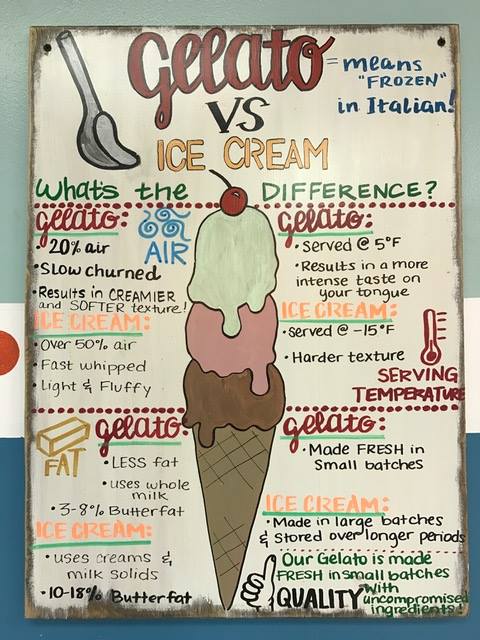 Gelato = means
"FROZEN"
in Italian!
VS
ICE CREAM
What's the DIFFERENCE?
gelato:
• 20% air
• Slow churned
• Results in CREAMIER
and SOFTER texture!
AIR
ICE CREAM:
• Over 50% air
• Fast whipped
• Light & Fluffy
gelato:
• Served @ 5°F
• Results in a more
intense taste on
your tongue
ICE CREAM:
• Served @ -15°F
• Harder texture
SERVING
TEMPERATURE
FAT
gelato:
• LESS fat
• uses whole
milk
• 3-8% Butterfat
ICE CREAM:
• uses creams &
milk solids
• 10-18% Butterfat
gelato:
• Made FRESH in
Small batches
ICE CREAM:
• Made in large batches
& Stored over longer periods
Our Gelato is made
FRESH in small batches
QUALITY with
uncompromised
ingredients!